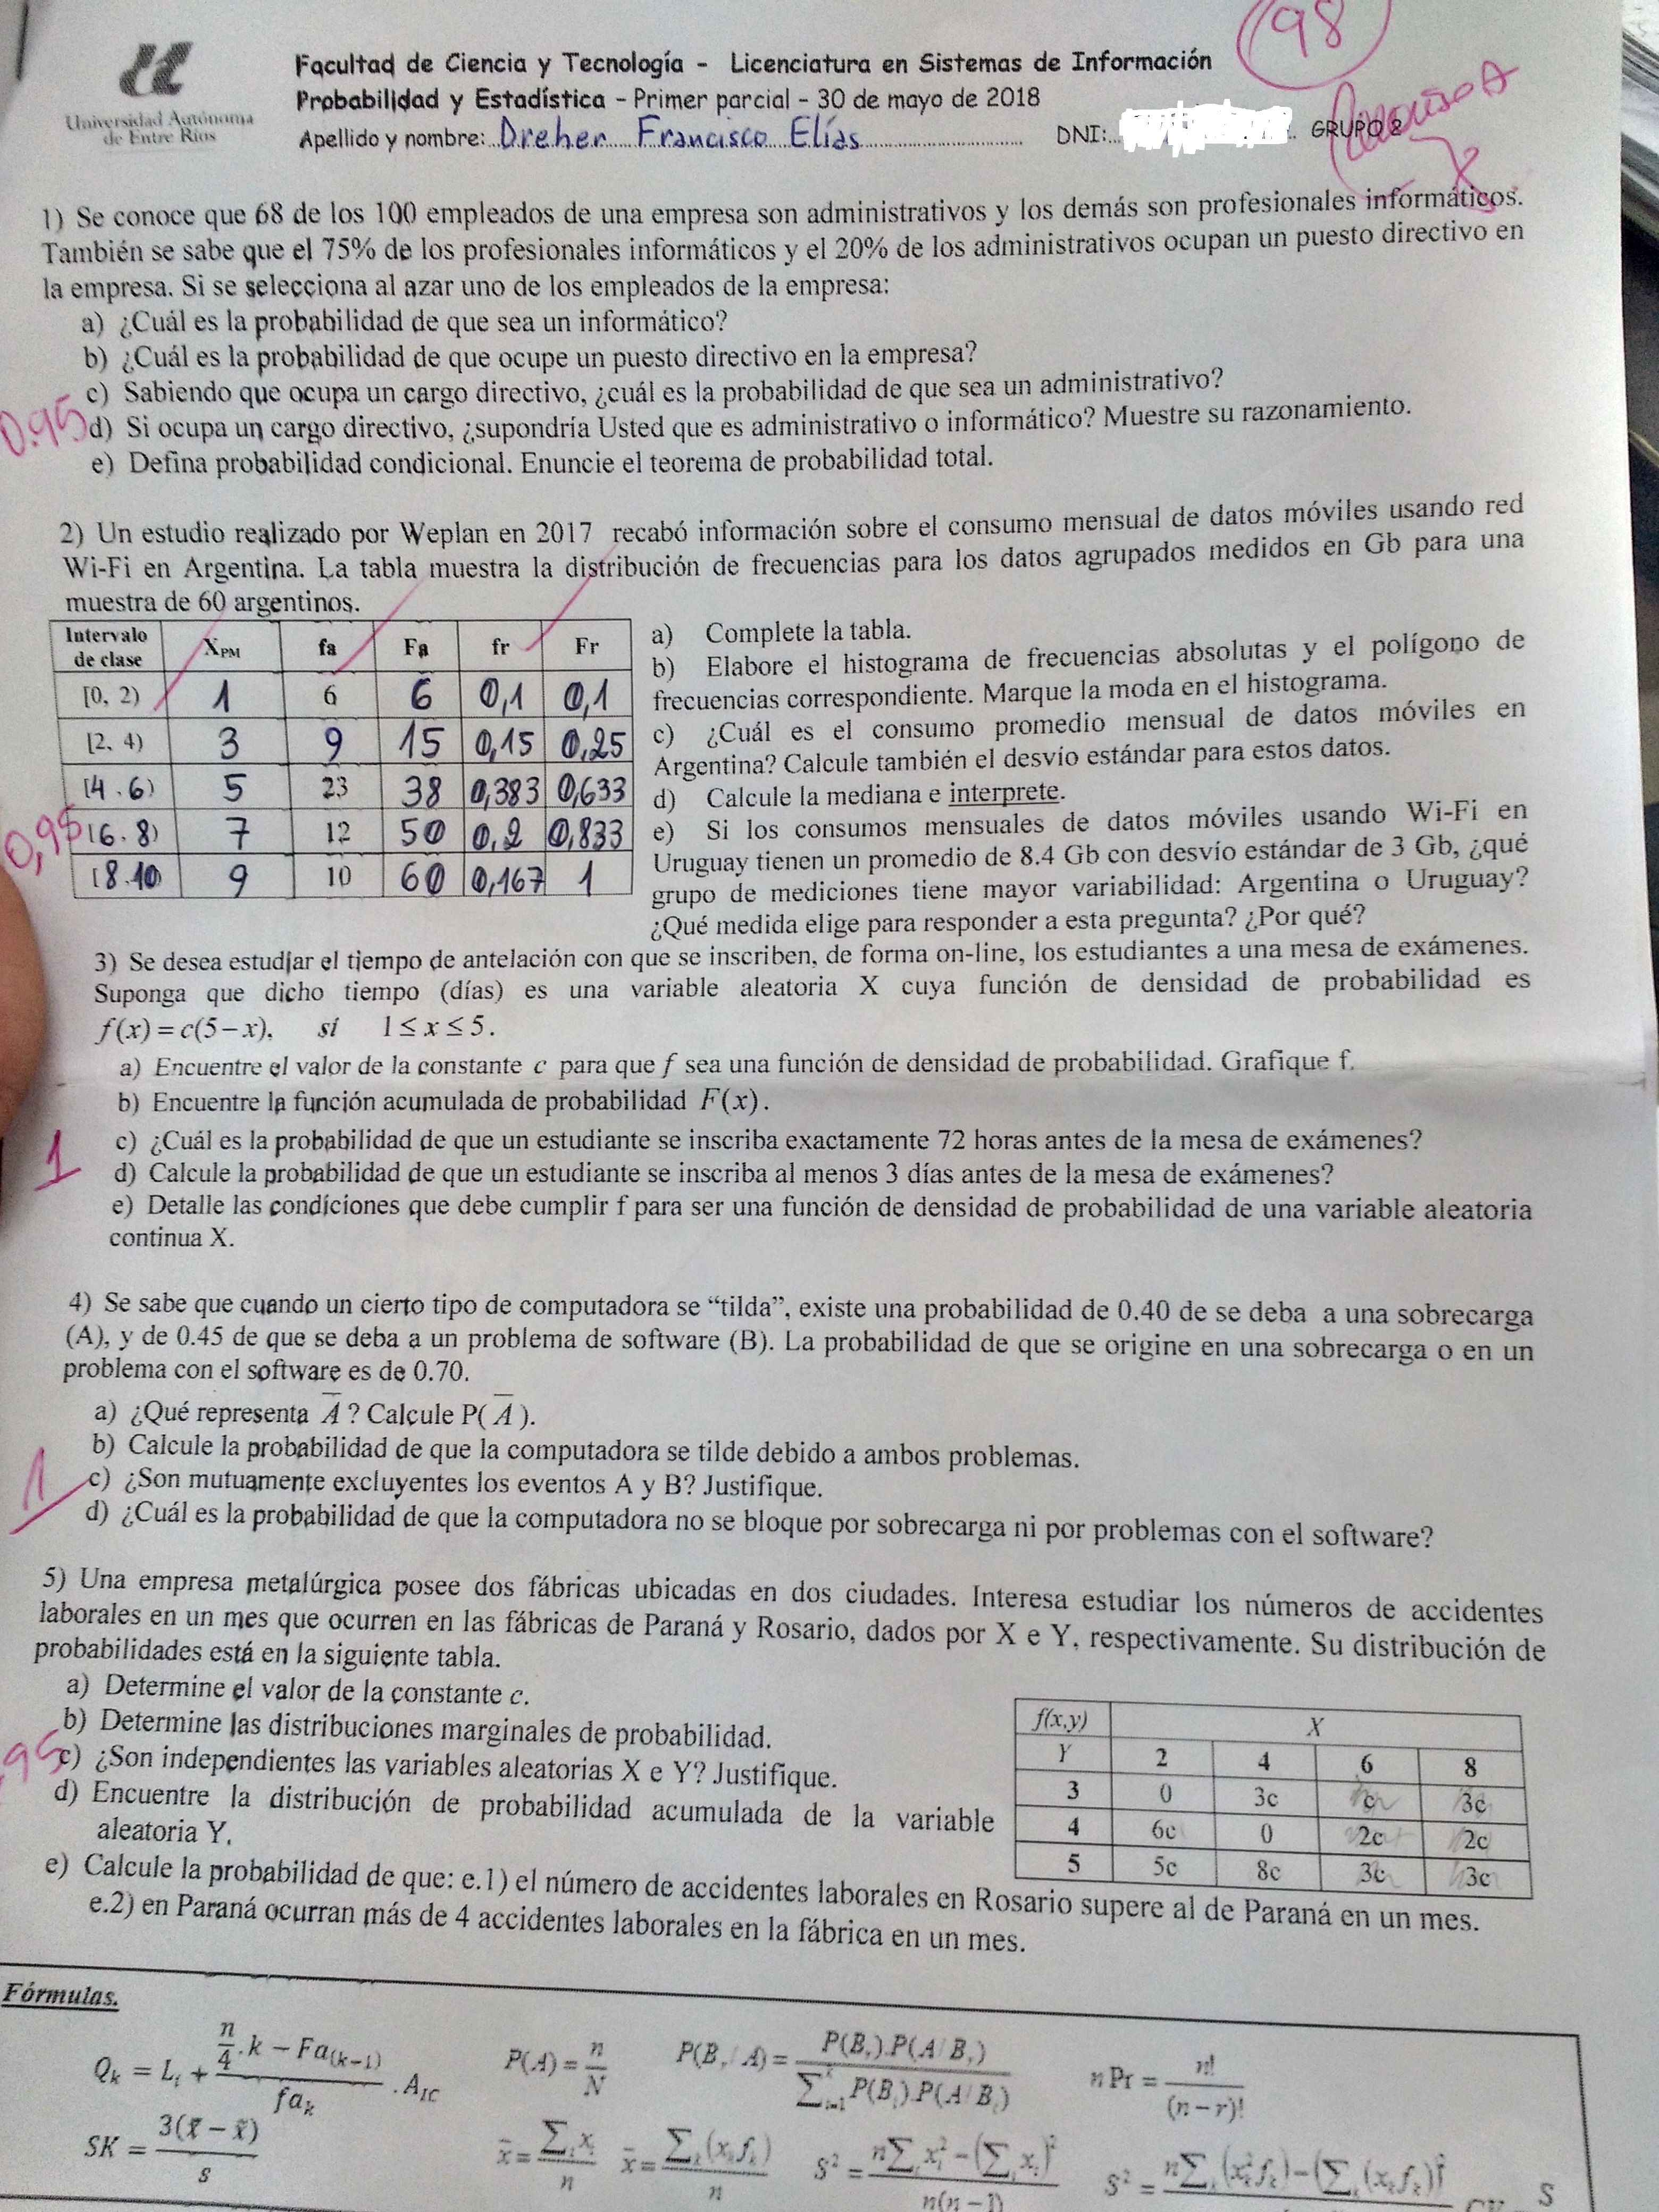 98
Facultad de Ciencia y Tecnología - Licenciatura en Sistemas de Información
Probabilidad y Estadística - Primer parcial - 30 de mayo de 2018
Universidad Autónoma
de Entre Ríos
Apellido y nombre: Dreher Francisco Elías DNI: GRUPO 2
1) Se conoce que 68 de los 100 empleados de una empresa son administrativos y los demás son profesionales informáticos.
También se sabe que el 75% de los profesionales informáticos y el 20% de los administrativos ocupan un puesto directivo en
la empresa. Si se selecciona al azar uno de los empleados de la empresa:
a) ¿Cuál es la probabilidad de que sea un informático?
b) ¿Cuál es la probabilidad de que ocupe un puesto directivo en la empresa?
c) Sabiendo que ocupa un cargo directivo, ¿cuál es la probabilidad de que sea un administrativo?
0.95
d) Si ocupa un cargo directivo, ¿supondría Usted que es administrativo o informático? Muestre su razonamiento.
e) Defina probabilidad condicional. Enuncie el teorema de probabilidad total.
2) Un estudio realizado por Weplan en 2017 recabó información sobre el consumo mensual de datos móviles usando red
Wi-Fi en Argentina. La tabla muestra la distribución de frecuencias para los datos agrupados medidos en Gb para una
muestra de 60 argentinos.
Intervalo de clase XPM fa Fa fr Fr
[0, 2) 1 6 6 0,1 0,1
[2, 4) 3 9 15 0,15 0,25
[4 . 6) 5 23 38 0,383 0,633
[6 . 8) 7 12 50 0,2 0,833
[8 . 10) 9 10 60 0,167 1
0,95
a) Complete la tabla.
b) Elabore el histograma de frecuencias absolutas y el polígono de
frecuencias correspondiente. Marque la moda en el histograma.
c) ¿Cuál es el consumo promedio mensual de datos móviles en
Argentina? Calcule también el desvío estándar para estos datos.
d) Calcule la mediana e interprete.
e) Si los consumos mensuales de datos móviles usando Wi-Fi en
Uruguay tienen un promedio de 8.4 Gb con desvío estándar de 3 Gb, ¿qué
grupo de mediciones tiene mayor variabilidad: Argentina o Uruguay?
¿Qué medida elige para responder a esta pregunta? ¿Por qué?
3) Se desea estudiar el tiempo de antelación con que se inscriben, de forma on-line, los estudiantes a una mesa de exámenes.
Suponga que dicho tiempo (días) es una variable aleatoria X cuya función de densidad de probabilidad es
f(x) = c(5 − x), si 1 ≤ x ≤ 5.
a) Encuentre el valor de la constante c para que f sea una función de densidad de probabilidad. Grafique f.
b) Encuentre la función acumulada de probabilidad F(x).
1
c) ¿Cuál es la probabilidad de que un estudiante se inscriba exactamente 72 horas antes de la mesa de exámenes?
d) Calcule la probabilidad de que un estudiante se inscriba al menos 3 días antes de la mesa de exámenes?
e) Detalle las condiciones que debe cumplir f para ser una función de densidad de probabilidad de una variable aleatoria
continua X.
4) Se sabe que cuando un cierto tipo de computadora se “tilda”, existe una probabilidad de 0.40 de se deba a una sobrecarga
(A), y de 0.45 de que se deba a un problema de software (B). La probabilidad de que se origine en una sobrecarga o en un
problema con el software es de 0.70.
a) ¿Qué representa A̅ ? Calcule P( A̅ ).
b) Calcule la probabilidad de que la computadora se tilde debido a ambos problemas.
1
c) ¿Son mutuamente excluyentes los eventos A y B? Justifique.
d) ¿Cuál es la probabilidad de que la computadora no se bloque por sobrecarga ni por problemas con el software?
5) Una empresa metalúrgica posee dos fábricas ubicadas en dos ciudades. Interesa estudiar los números de accidentes
laborales en un mes que ocurren en las fábricas de Paraná y Rosario, dados por X e Y, respectivamente. Su distribución de
probabilidades está en la siguiente tabla.
a) Determine el valor de la constante c.
b) Determine las distribuciones marginales de probabilidad.
95
c) ¿Son independientes las variables aleatorias X e Y? Justifique.
d) Encuentre la distribución de probabilidad acumulada de la variable
aleatoria Y.
f(x,y) X
Y 2 4 6 8
3 0 3c c 3c
4 6c 0 2c 2c
5 5c 8c 3c 3c
e) Calcule la probabilidad de que: e.1) el número de accidentes laborales en Rosario supere al de Paraná en un mes.
e.2) en Paraná ocurran más de 4 accidentes laborales en la fábrica en un mes.
Fórmulas.
Qk = Li + (n/4 . k − Fa(k−1)) / fak . AIC
P(A) = n/N
P(Br/A) = P(Br).P(A/Br) / ∑ki=1 P(Bi).P(A/Bi)
nPr = n! / (n−r)!
SK = 3(x̄ − x̃) / s
x̄ = ∑i xi / n
x̄ = ∑k(xk fk) / n
S² = n∑i xi² − (∑i xi)² / n(n−1)
S² = n∑i(xk² fk) − (∑i(xk fk))²
CV = S